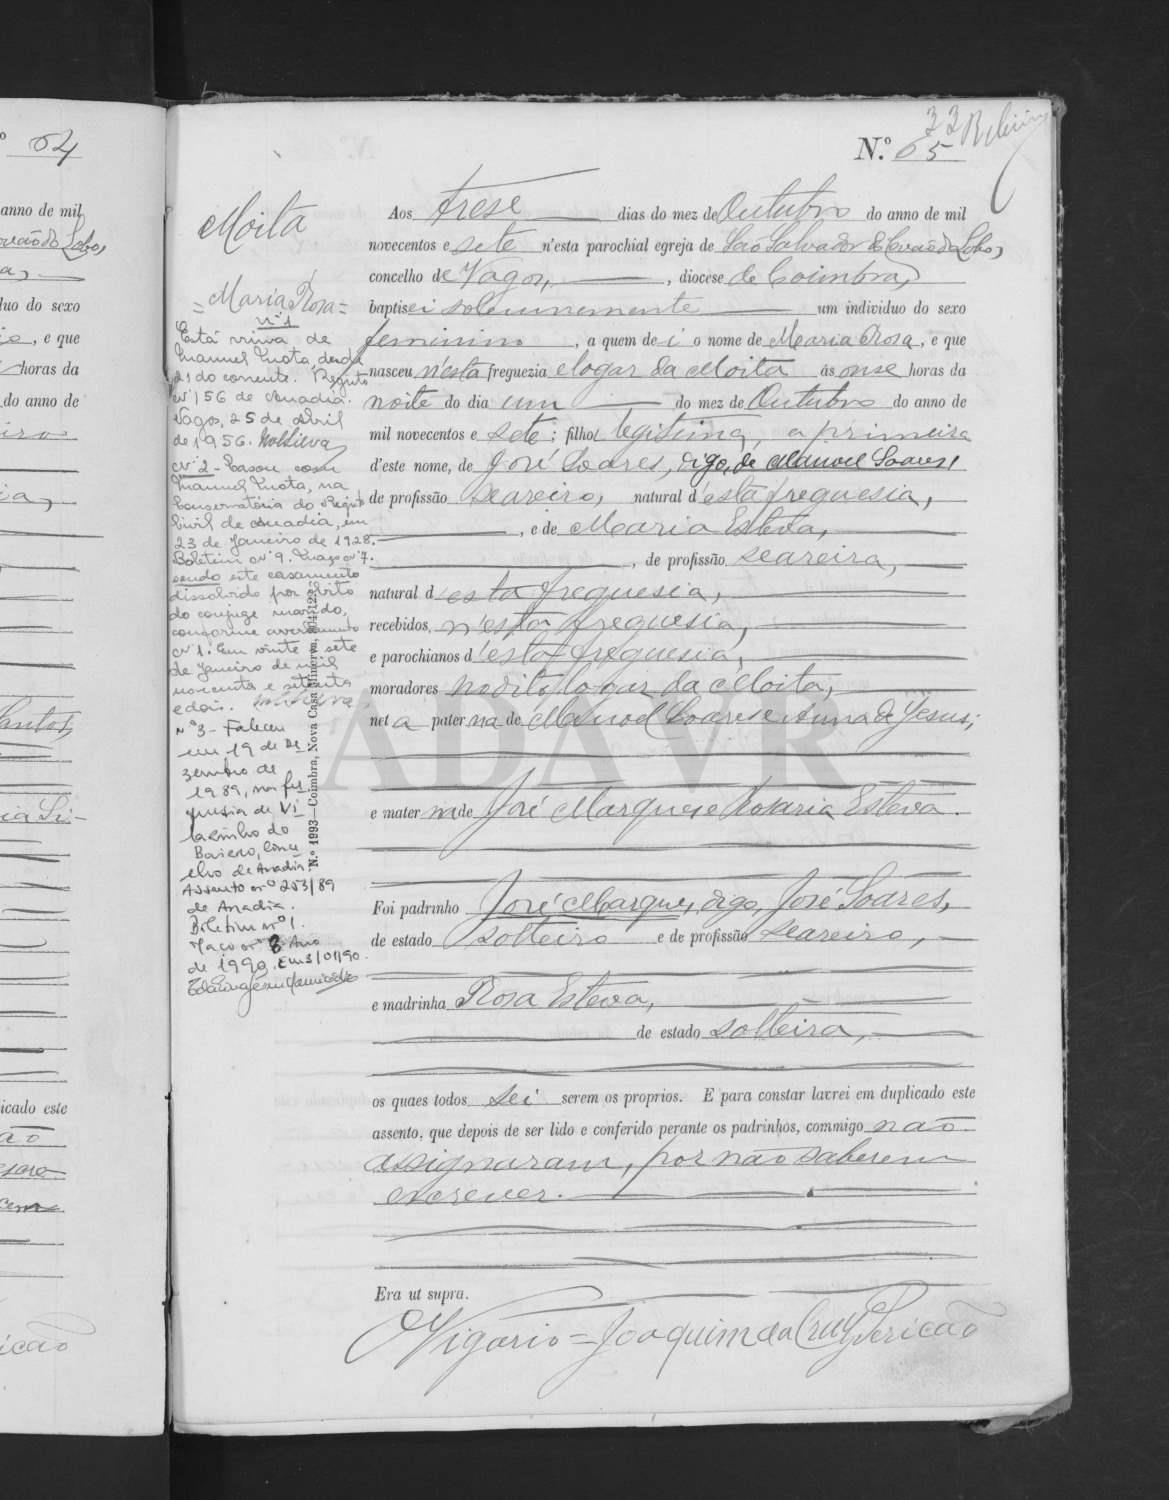 º 64
anno de mil
Lobo,
duo do sexo
, e que
horas da
do anno de
Santos,
icado este
icão
33
N.º 65
Moita
= Maria Rosa =
nº 1
Está viuva de
Manuel Mota desde
21 do corrente. Registo
nº 156 de Anadia.
Vagos, 25 de Abril
de 1956.
Nº 2 - Casou com
Manuel Mota, na
Conservatória do Registo
Civil de Anadia, em
23 de Janeiro de 1928.
Boletim nº 9. Maço nº 7.
sendo este casamento
dissolvido por óbito
do conjuge marido,
conforme averbamento
nº 1. Em vinte e sete
de Janeiro de mil
novecentos e setenta
e dois.
Nº 3 - Faleceu
em 19 de De
zembro de
1989, na fre
guesia de Vi
larinho do
Bairro, conce
lho de Anadia.
Assento nº 253/89
de Anadia.
Boletim nº 1.
Maço nº 8 Ano
de 1990. Em 3/01/90.
N.º 1993—Coimbra, Nova Casa Minerva,
Aos trese dias do mez de Outubro do anno de mil
novecentos e sete n'esta parochial egreja de São Salvador de Covão do Lobo,
concelho de Vagos, , diocese de Coimbra,
baptisei solemnemente um individuo do sexo
feminino , a quem dei o nome de Maria Rosa , e que
nasceu n'esta freguezia e logar da Moita ás onse horas da
noite do dia um do mez de Outubro do anno de
mil novecentos e sete ; filha legitima, a primeira
d'este nome, de José Soares, digo, de Manoel Soares,
de profissão seareiro, natural d'esta freguesia,
, e de Maria Esteva,
, de profissão seareira,
natural d'esta freguesia,
recebidos, n'esta freguesia,
e parochianos d'esta freguesia,
moradores no dito logar da Moita,
neta paterna de Manoel Soares e Anna de Jesus;
e materna de José Marques e Rosaria Esteva.
Foi padrinho José Marques, digo, José Soares,
de estado solteiro e de profissão seareiro,
e madrinha Rosa Esteva,
de estado solteira,
os quaes todos sei serem os proprios. E para constar lavrei em duplicado este
assento, que depois de ser lido e conferido perante os padrinhos, commigo não
assignaram, por não saberem
escrever.
Era ut supra.
O Vigario = Joaquim da Cruz Pericão
ADAVR